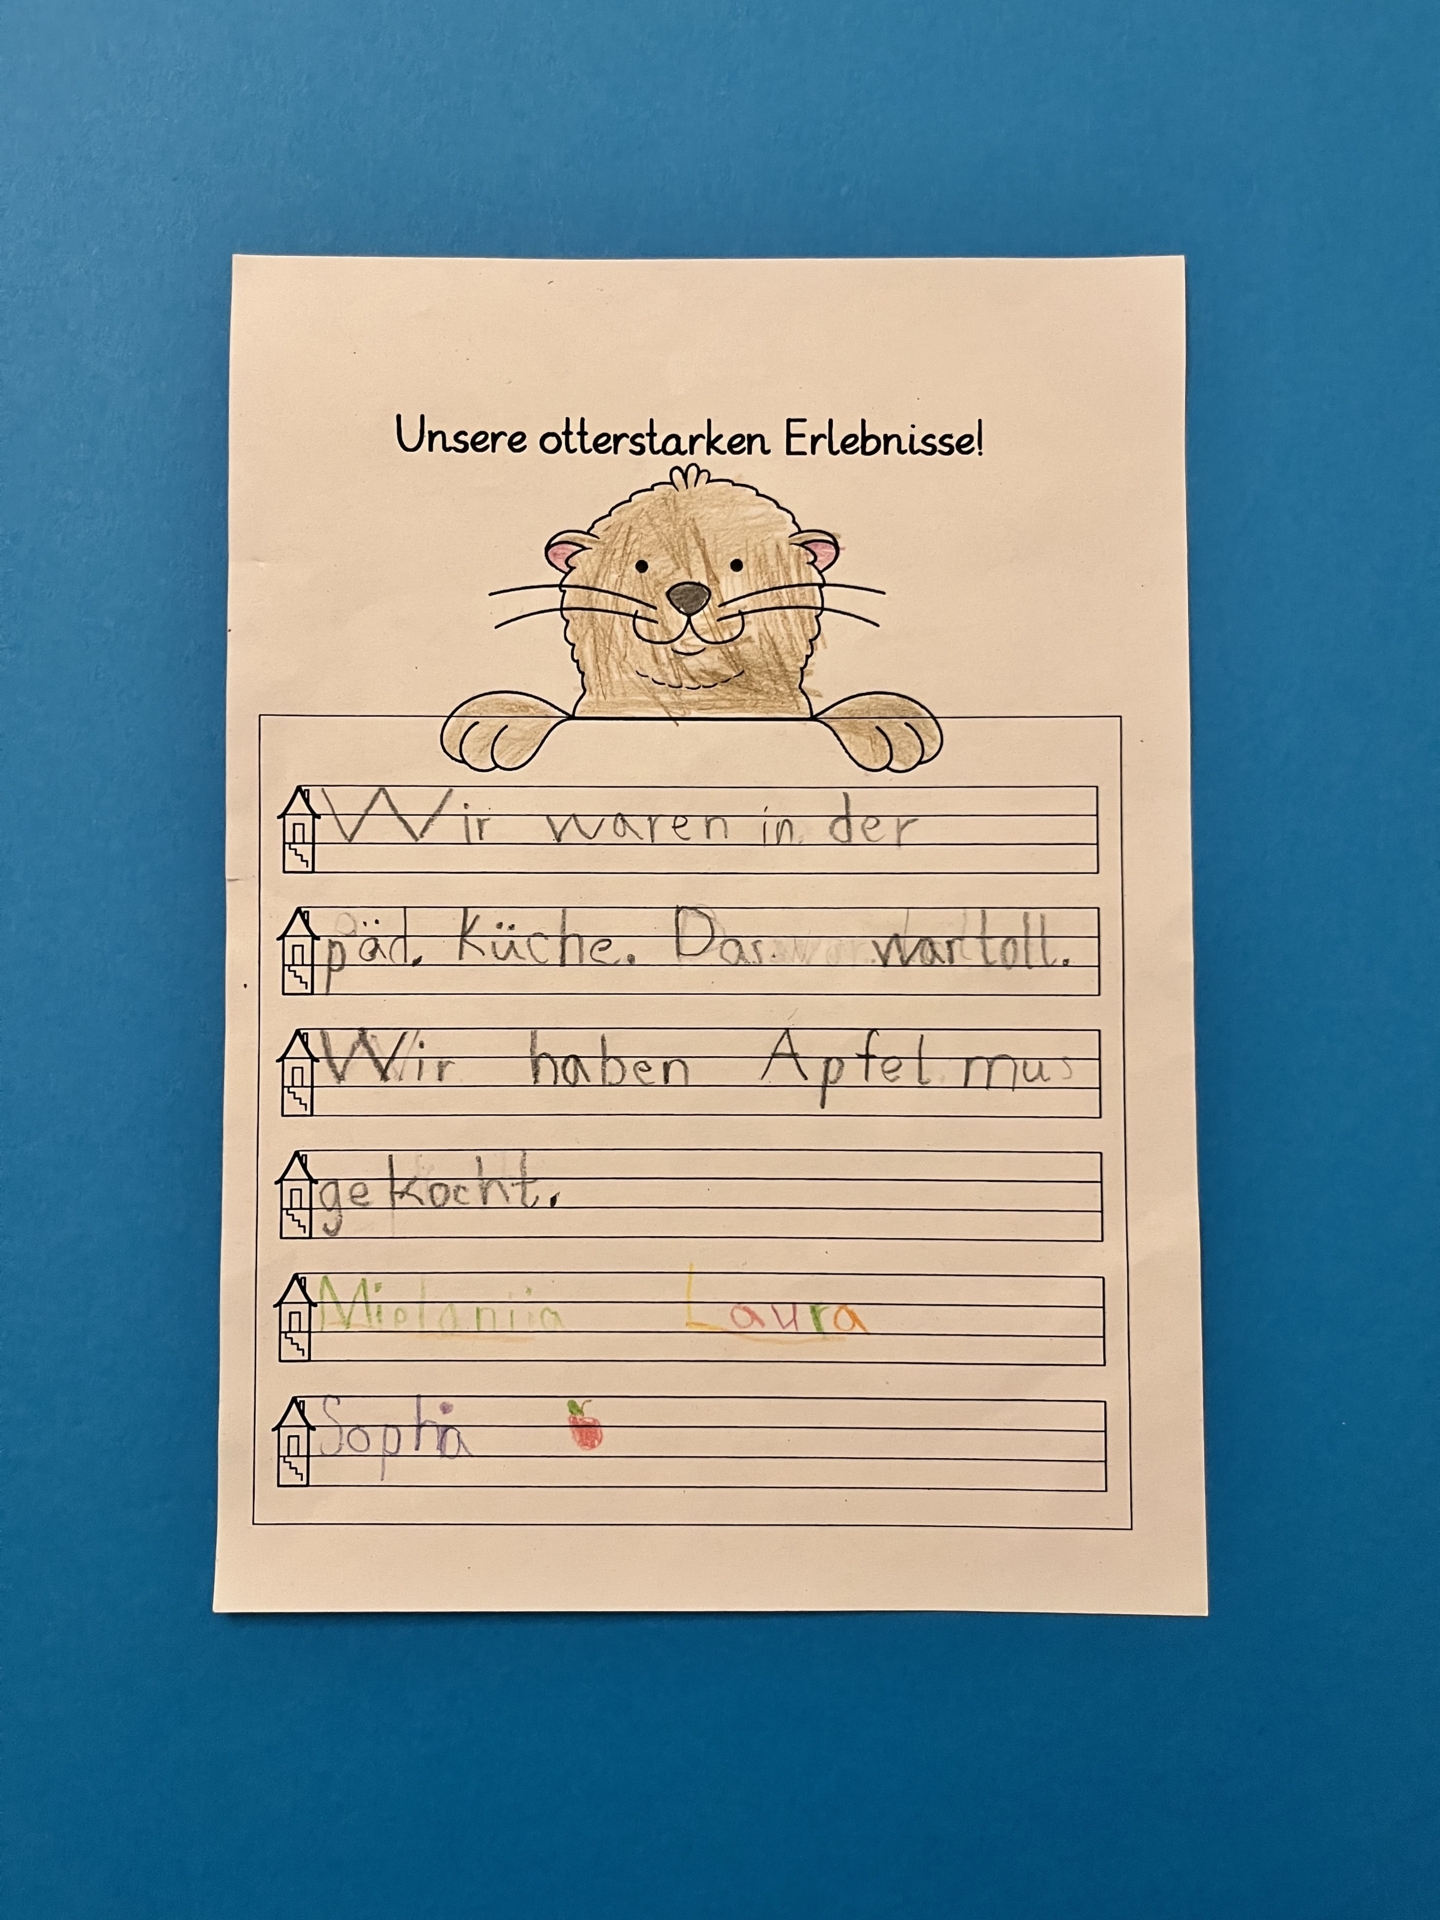 Unsere otterstarken Erlebnisse!
Wir waren in der
päd. Küche. Das war toll.
Wir haben Apfelmus
gekocht.
Laura
Sophia